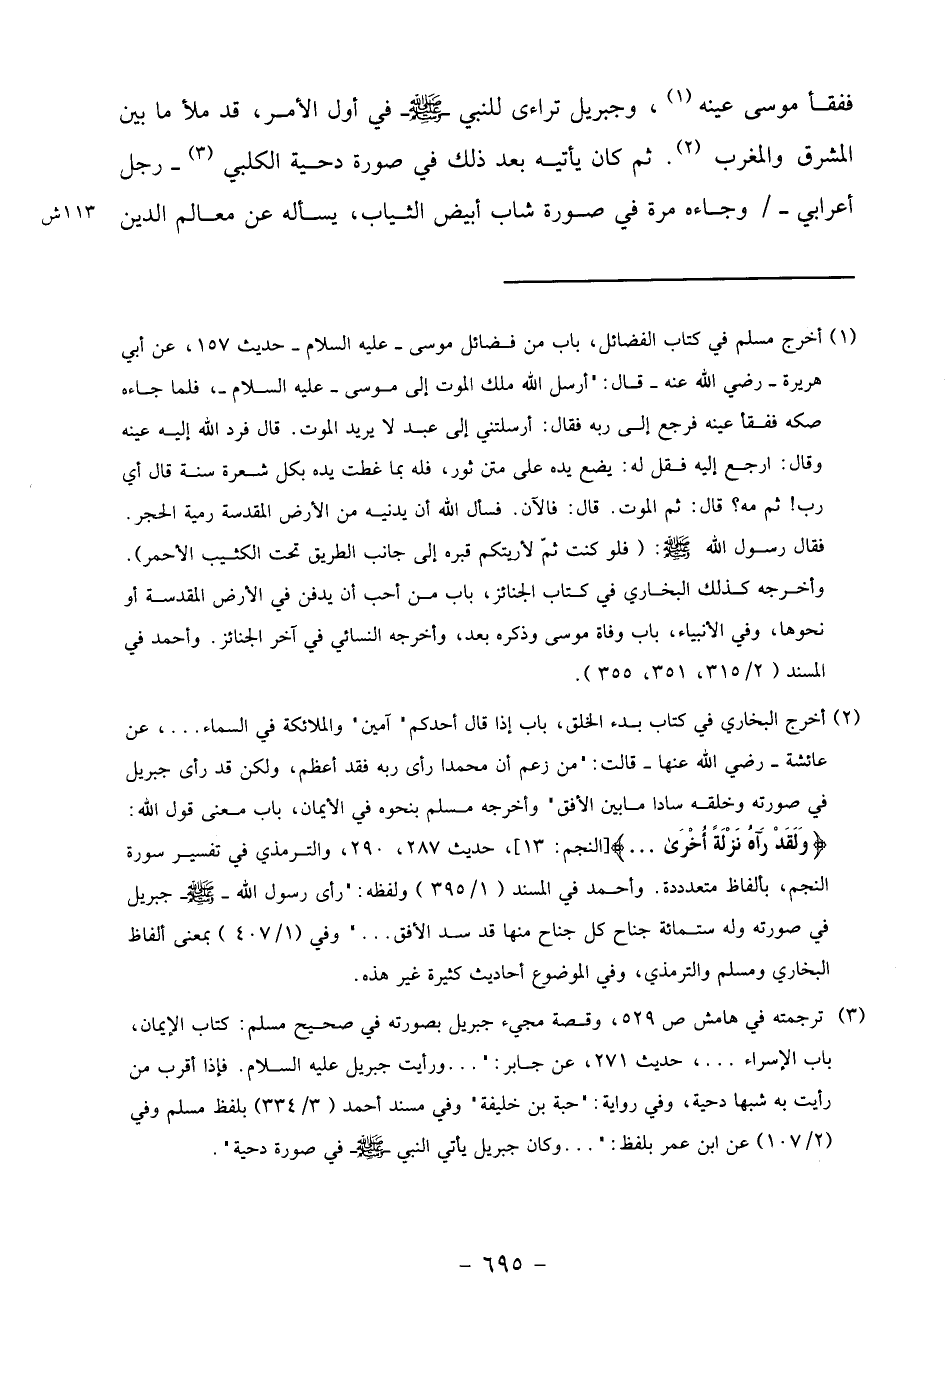 ففقأ موسى عينه (١) ، وجبريل تراءى للنبي ـ ﷺ ـ في أول الأمر، قد ملأ ما بين
المشرق والمغرب (٢). ثم كان يأتيه بعد ذلك في صورة دحية الكلبي (٣) ـ رجل
أعرابي ـ / وجاءه مرة في صورة شاب أبيض الثياب، يسأله عن معالم الدين ١١٣ش
(١) أخرج مسلم في كتاب الفضائل، باب من فضائل موسى ـ عليه السلام ـ حديث ١٥٧، عن أبي
هريرة ـ رضي الله عنه ـ قال: "أرسل الله ملك الموت إلى موسى ـ عليه السلام ـ، فلما جاءه
صكه ففقأ عينه فرجع إلى ربه فقال: أرسلتني إلى عبد لا يريد الموت. قال فرد الله إليه عينه
وقال: ارجع إليه فقل له: يضع يده على متن ثور، فله بما غطت يده بكل شعرة سنة قال أي
رب! ثم مه؟ قال: ثم الموت. قال: فالآن. فسأل الله أن يدنيه من الأرض المقدسة رمية الحجر.
فقال رسول الله ﷺ: ( فلو كنت ثمّ لأريتكم قبره إلى جانب الطريق تحت الكثيب الأحمر).
وأخرجه كذلك البخاري في كتاب الجنائز، باب من أحب أن يدفن في الأرض المقدسة أو
نحوها، وفي الأنبياء، باب وفاة موسى وذكره بعد، وأخرجه النسائي في آخر الجنائز. وأحمد في
المسند ( ٣١٥/٢، ٣٥١، ٣٥٥ ).
(٢) أخرج البخاري في كتاب بدء الخلق، باب إذا قال أحدكم "آمين" والملائكة في السماء ...، عن
عائشة ـ رضي الله عنها ـ قالت: "من زعم أن محمدا رأى ربه فقد أعظم، ولكن قد رأى جبريل
في صورته وخلقه سادا مابين الأفق" وأخرجه مسلم بنحوه في الأيمان، باب معنى قول الله:
﴿وَلَقَدْ رَآهُ نَزْلَةً أُخْرَىٰ ...﴾[النجم: ١٣]، حديث ٢٨٧، ٢٩٠، والترمذي في تفسير سورة
النجم، بألفاظ متعدددة. وأحمد في المسند ( ٣٩٥/١ ) ولفظه: "رأى رسول الله ـ ﷺ ـ جبريل
في صورته وله ستمائة جناح كل جناح منها قد سد الأفق..." وفي (٤٠٧/١ ) بمعنى ألفاظ
البخاري ومسلم والترمذي، وفي الموضوع أحاديث كثيرة غير هذه.
(٣) ترجمته في هامش ص ٥٢٩، وقصة مجيء جبريل بصورته في صحيح مسلم: كتاب الإيمان،
باب الإسراء ...، حديث ٢٧١، عن جابر: "...ورأيت جبريل عليه السلام. فإذا أقرب من
رأيت به شبها دحية، وفي رواية: "حبة بن خليفة" وفي مسند أحمد ( ٣٣٤/٣) بلفظ مسلم وفي
(١٠٧/٢) عن ابن عمر بلفظ: "...وكان جبريل يأتي النبي ـ ﷺ ـ في صورة دحية".
- ٦٩٥ -